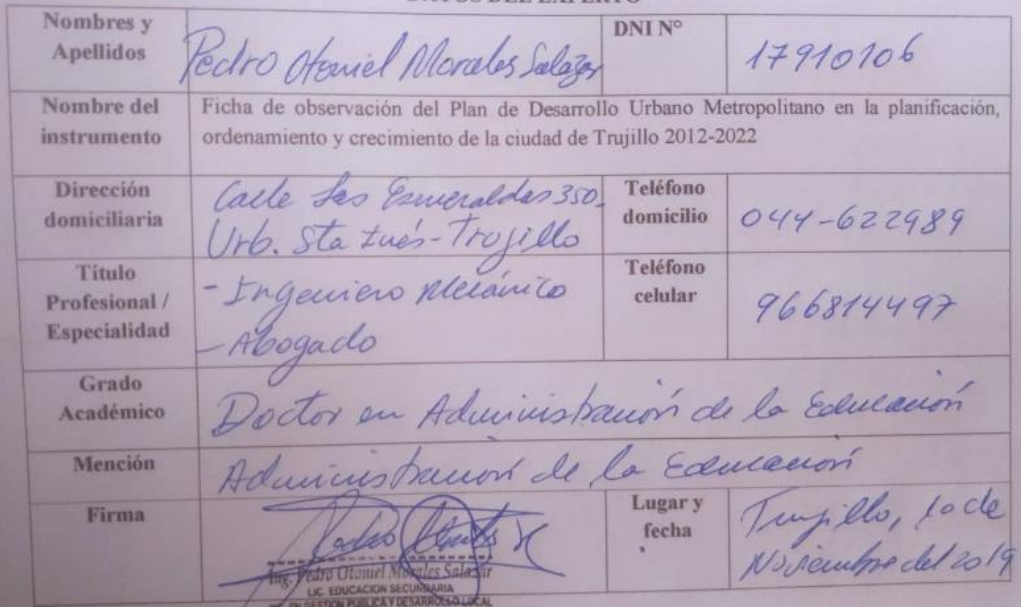 DATOS DEL EXPERTO
Nombres y Apellidos
Pedro Otoniel Morales Salazar
DNI N°
17910106
Nombre del instrumento
Ficha de observación del Plan de Desarrollo Urbano Metropolitano en la planificación,
ordenamiento y crecimiento de la ciudad de Trujillo 2012-2022
Dirección domiciliaria
Calle Las Esmeraldas 350-
Urb. Sta Inés-Trujillo
Teléfono domicilio
044-622989
Título Profesional / Especialidad
- Ingeniero Mecánico
- Abogado
Teléfono celular
966814497
Grado Académico
Doctor en Administración de la Educación
Mención
Administración de la Educación
Firma
Ing. Pedro Otoniel Morales Salazar
LIC. EDUCACION SECUNDARIA
EN GESTION PUBLICA Y DESARROLLO LOCAL
Lugar y fecha
Trujillo, 10 de
Noviembre del 2019